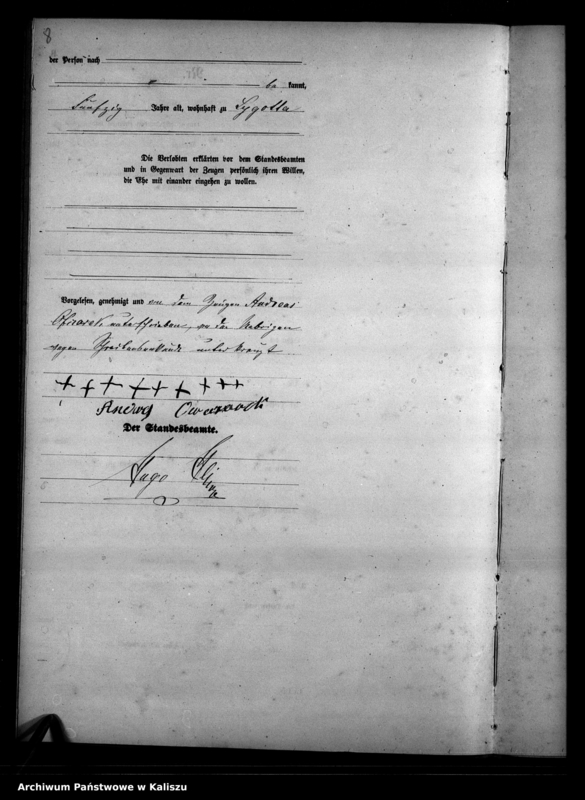 8
der Person nach
be kannt,
Fünfzig Jahre alt, wohnhaft zu Sygotta
Die Verlobten erklärten vor dem Standesbeamten
und in Gegenwart der Zeugen persönlich ihren Willen,
die Ehe mit einander eingehen zu wollen.
Vorgelesen, genehmigt und von dem Zeugen Andreas
unterschrieben, von den Uebrigen
wegen Schreibensunkunde unterkreuzt
+ + + + + + + + +
Der Standesbeamte.
Hugo
Archiwum Państwowe w Kaliszu